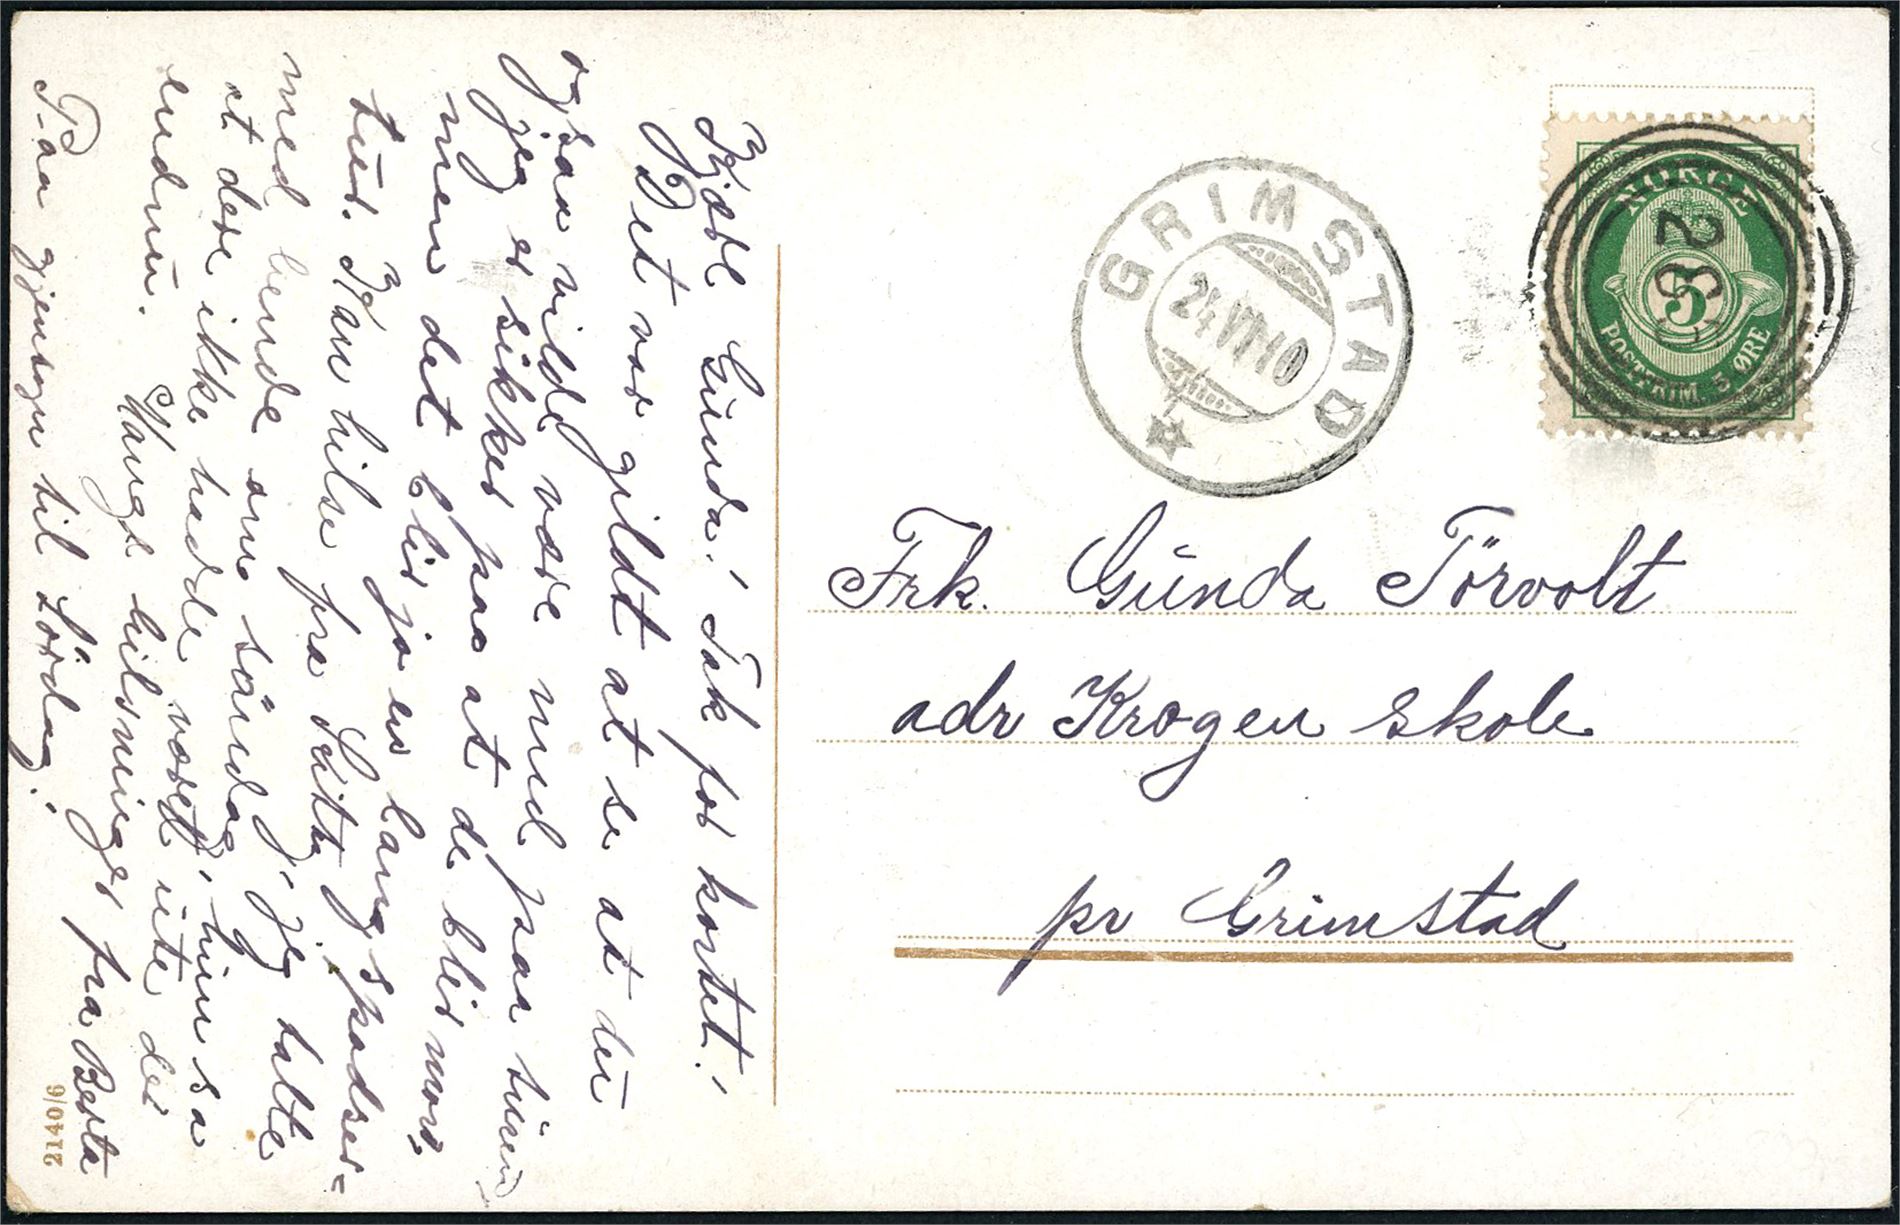 Kjære Gunda! Tak for kortet!
Det var gildt at se at du
ogsaa vilde være med paa turen
jeg er sikker paa at de blir mor,
men det blir jo en lang spadser=
tur. Kan hilse fra Litta, jeg talte
med hende om söndag, hun sa
at dere ikke hadde været ute der
endnu.
Mange hilsninger fra Berta
Paa gjensyn til Lördag!
21406/6
GRIMSTAD
24 VI 10
NORGE
POSTFRIM. 5 ØRE
5
Frk. Gunda Törvolt
adr Krogen skole
pr Grimstad